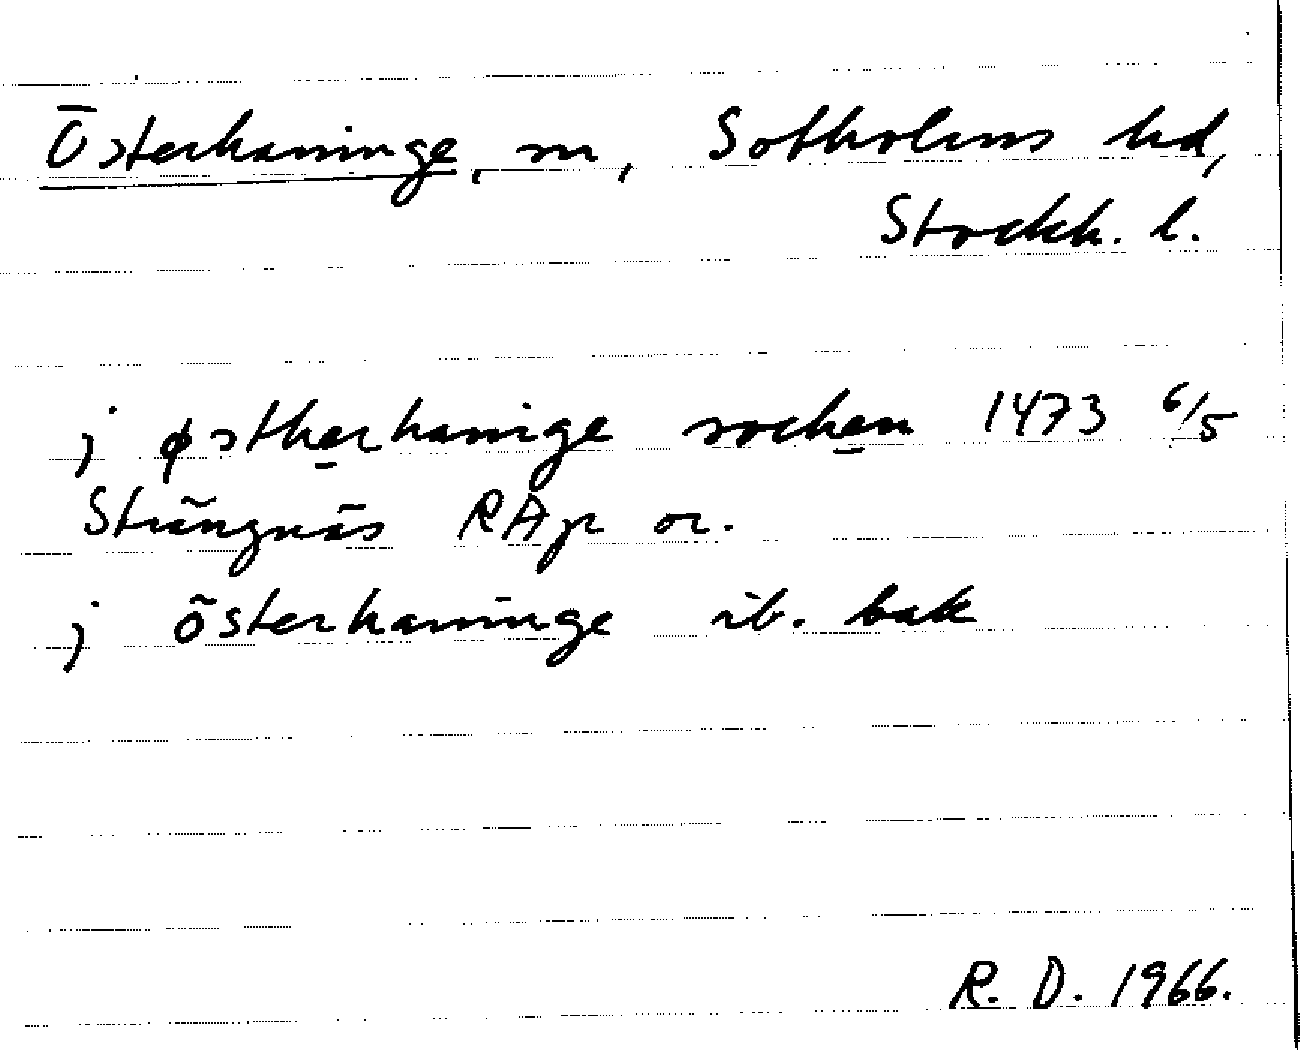 Österhaninge, sn, Sotholms hd,
Stockh. l.
j østherhanige sochen 1473 6/5
Strängnäs RAp or.
j österhaninge ib. bak
R. D. 1966.